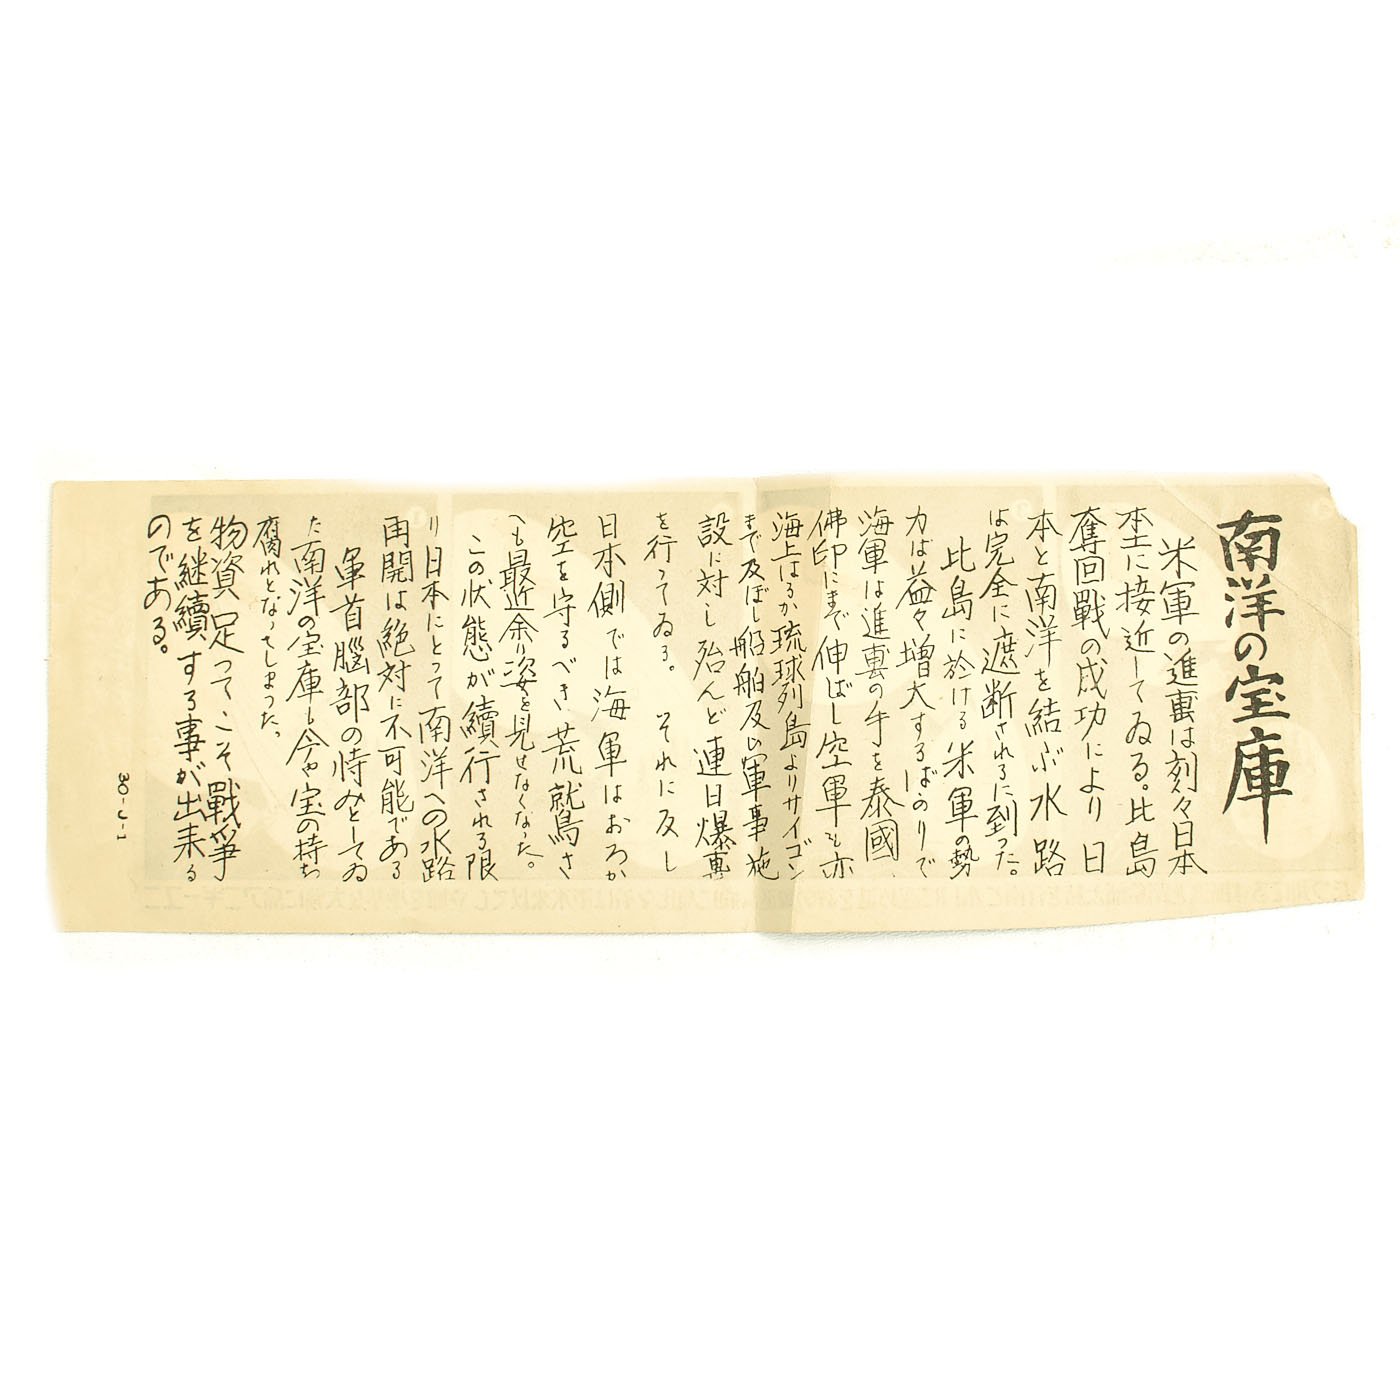 南洋の宝庫
米軍の進襲は刻々日本
本土に接近してゐる。比島
奪回戰の成功により日
本と南洋を結ぶ水路
は完全に遮断されるに到った。
比島に於ける米軍の勢
力は益々増大するばかりで
海軍は進襲の手を泰國、
佛印にまで伸ばし空軍も亦
海上はるか琉球列島よりサイゴン
まで及ぼし船舶及び軍事施
設に対し殆んど連日爆撃
を行ってゐる。それに反し
日本側では海軍はおろか
空を守るべき荒鷲さ
へも最近余り姿を見せなくなった。
この状態が續行される限
り日本にとって南洋への水路
再開は絶対に不可能である
軍首腦部の恃みとしてゐ
た南洋の宝庫も今や宝の持ち
腐れとなってしまった。
物資足ってこそ戰爭
を継續する事が出来る
のである。
30-J-1